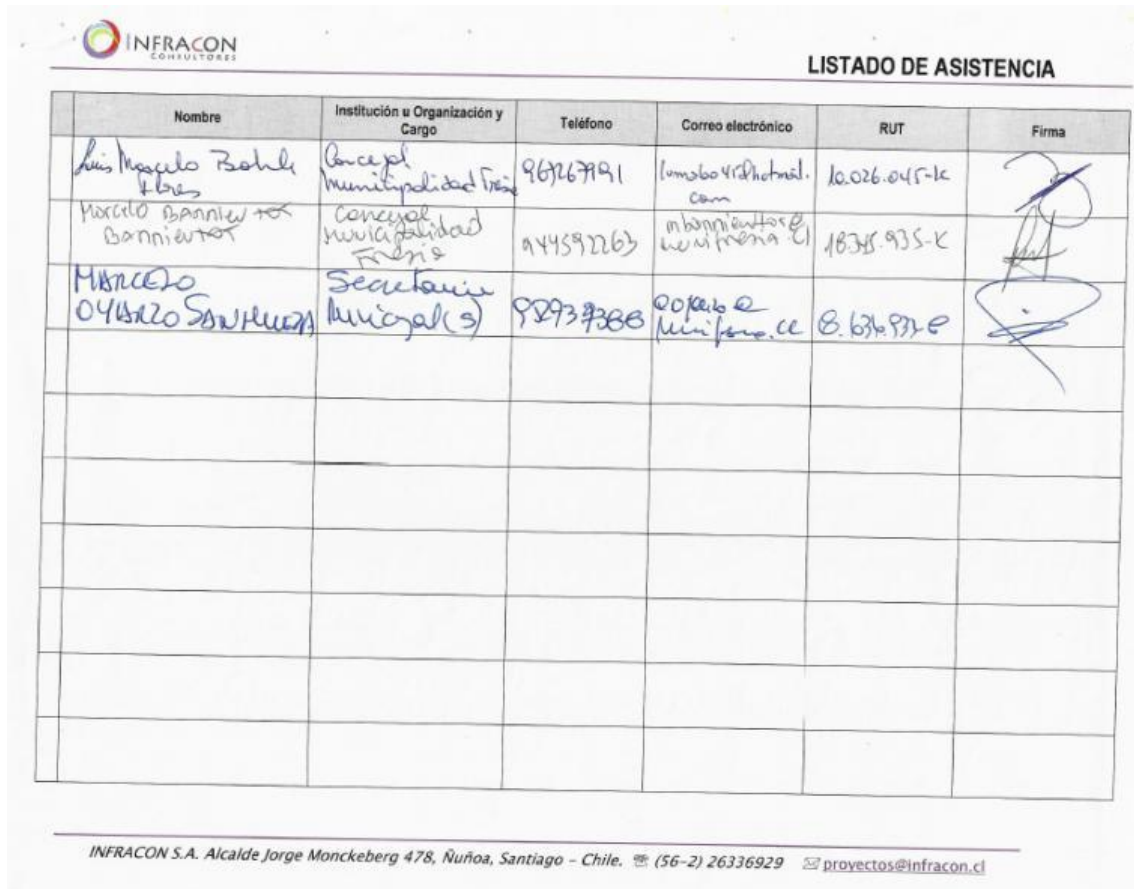 INFRACON
CONSULTORES
LISTADO DE ASISTENCIA
Nombre
Institución u Organización y
Cargo
Teléfono
Correo electrónico
RUT
Firma
Luis Marcelo Bohle
Flores
Concejal
Municipalidad Fresia
963267991
com
10.026.045-K
Marcelo Barrientos
Barrientos
Concejal
Municipalidad
Fresia
944592263
munifresia.cl
18.345.935-K
MARCELO
OYARZO SANHUEZA
Secretario
Municipal (s)
INFRACON S.A. Alcalde Jorge Monckeberg 478, Ñuñoa, Santiago – Chile. ☏ (56-2) 26336929 ✉ proyectos@infracon.cl